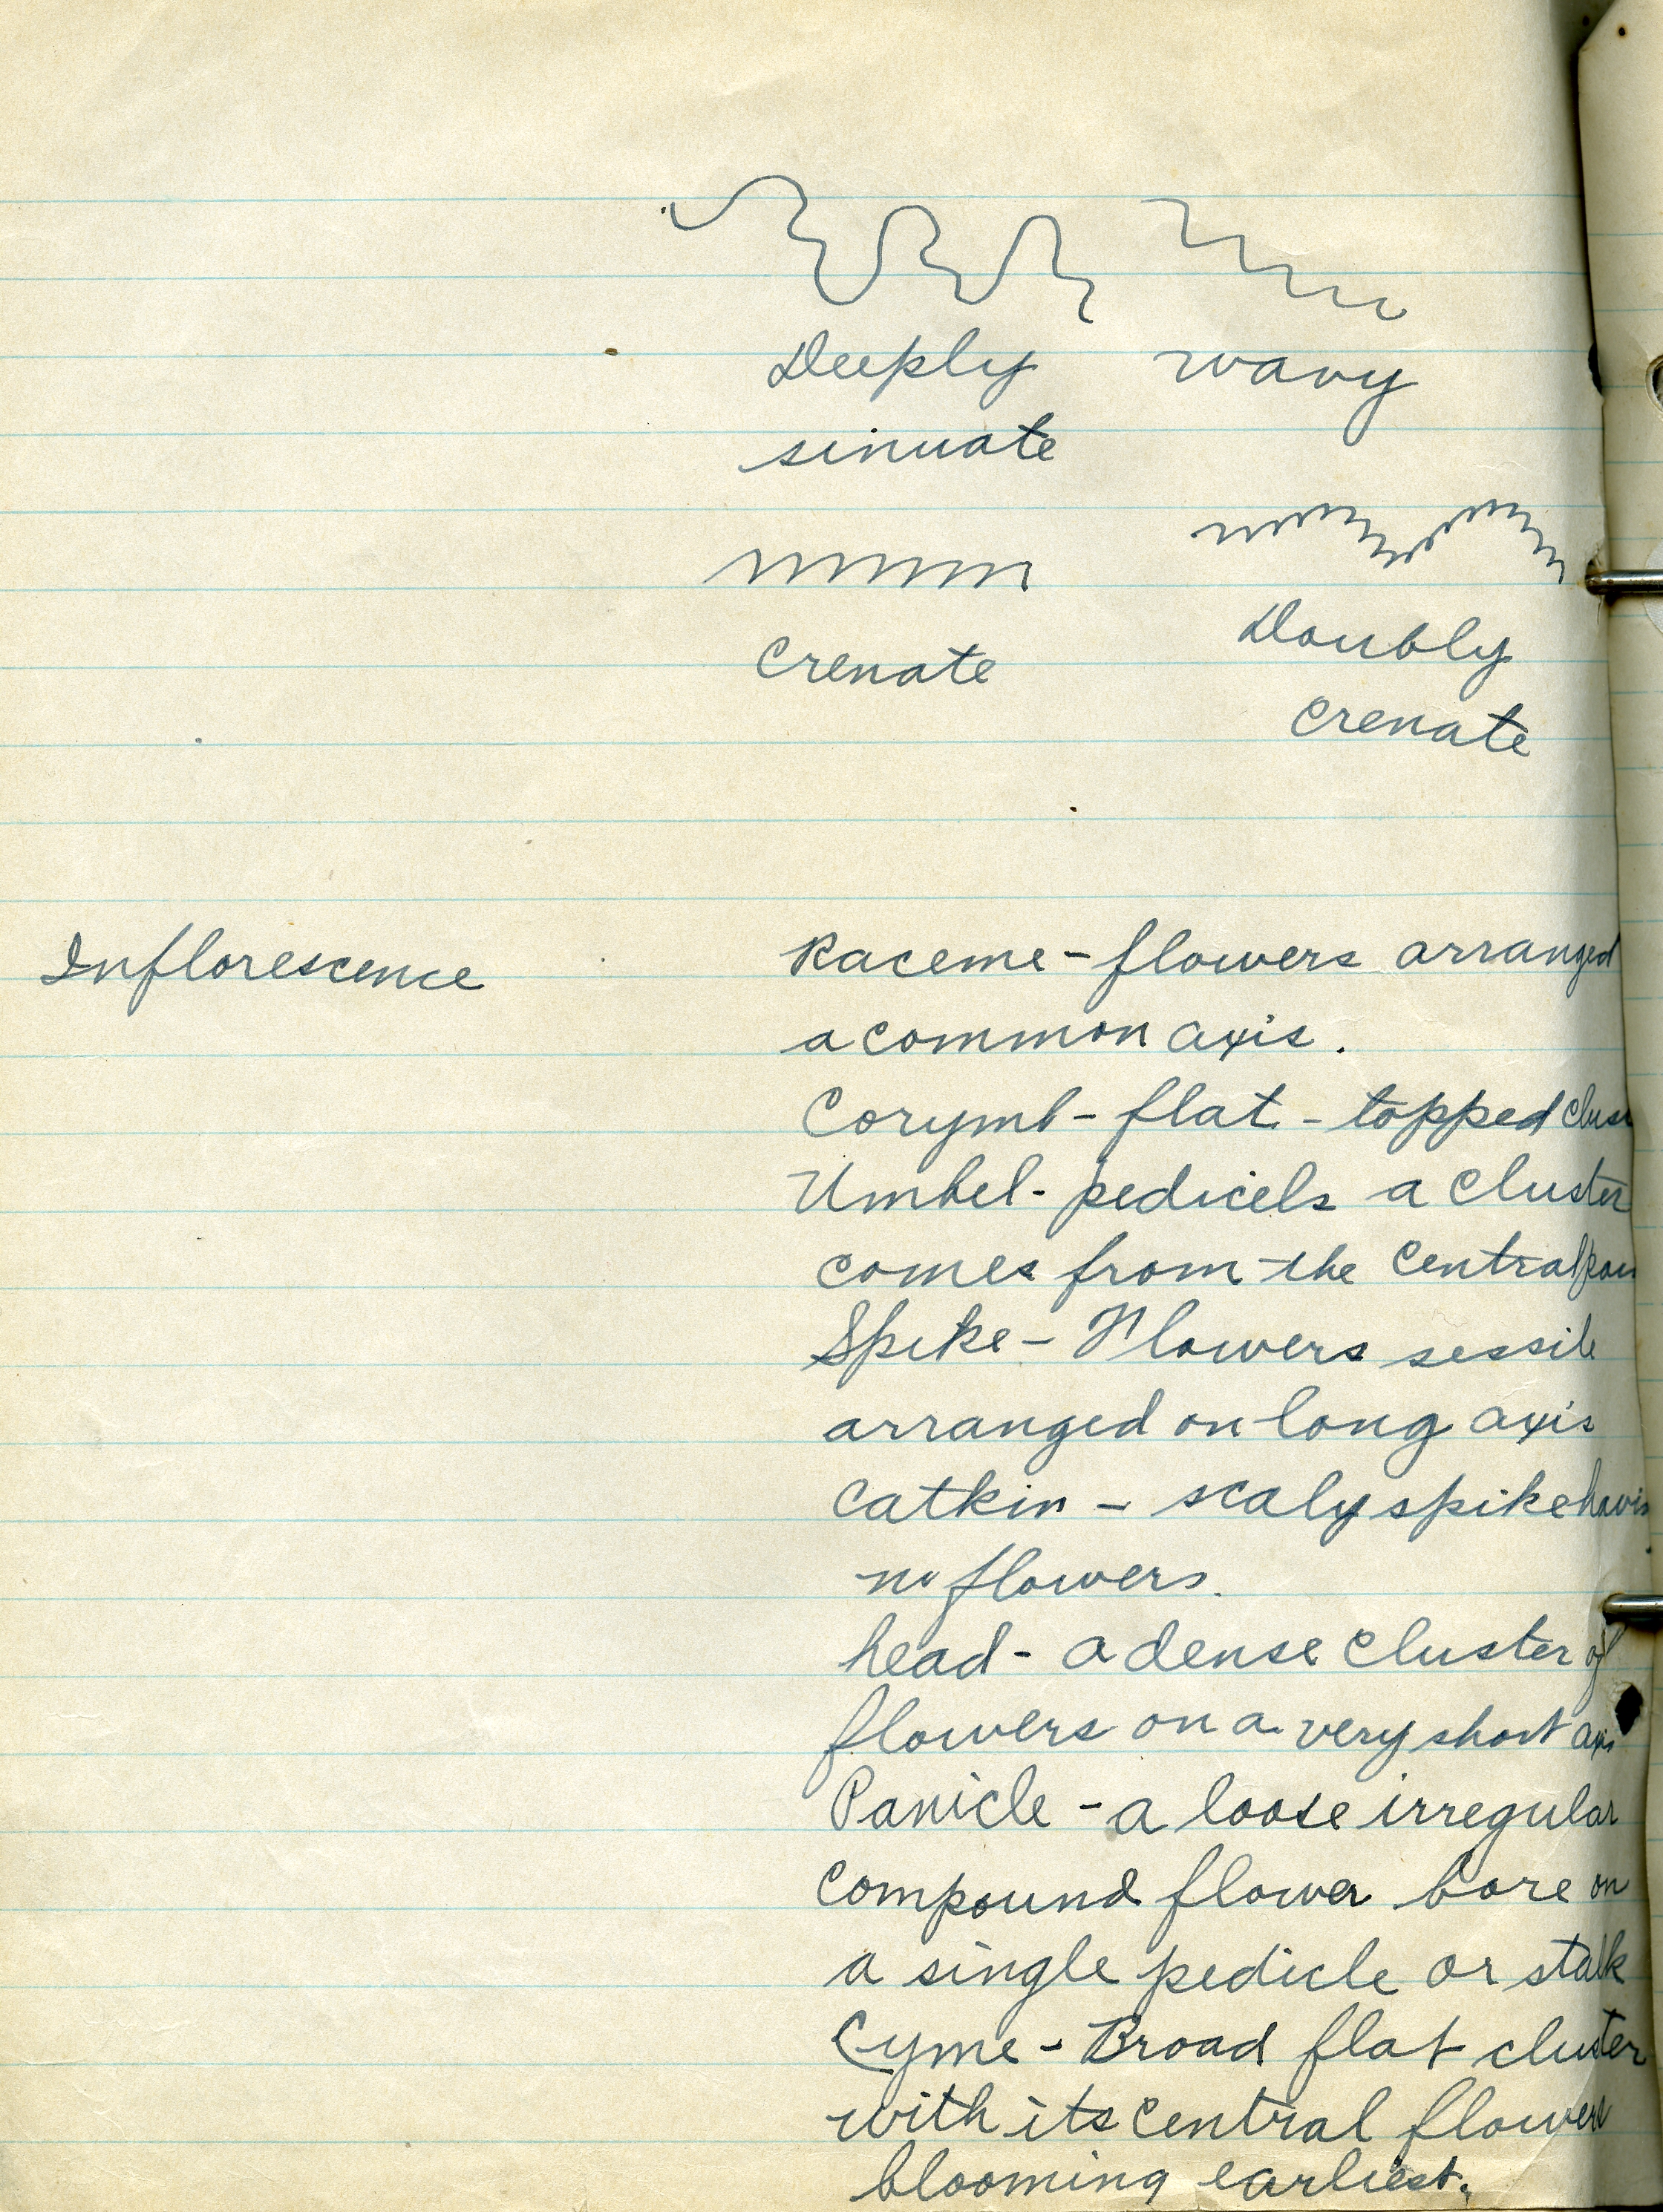 Deeply wavy
sinuate
Crenate
Doubly
crenate
Inflorescence
Raceme - flowers arranged
a common axis.
Corymb - flat - topped
Umbel - pedicels a cluster
comes from the central
Spike - Flowers sessile
arranged on long axis
Catkin - scaly spike
no flowers.
head - a dense cluster of
flowers on a very short
Panicle - a loose irregular
compound flower bore on
a single pedicle or stalk
Cyme - Broad flat cluster
with its central flowers
blooming earliest.